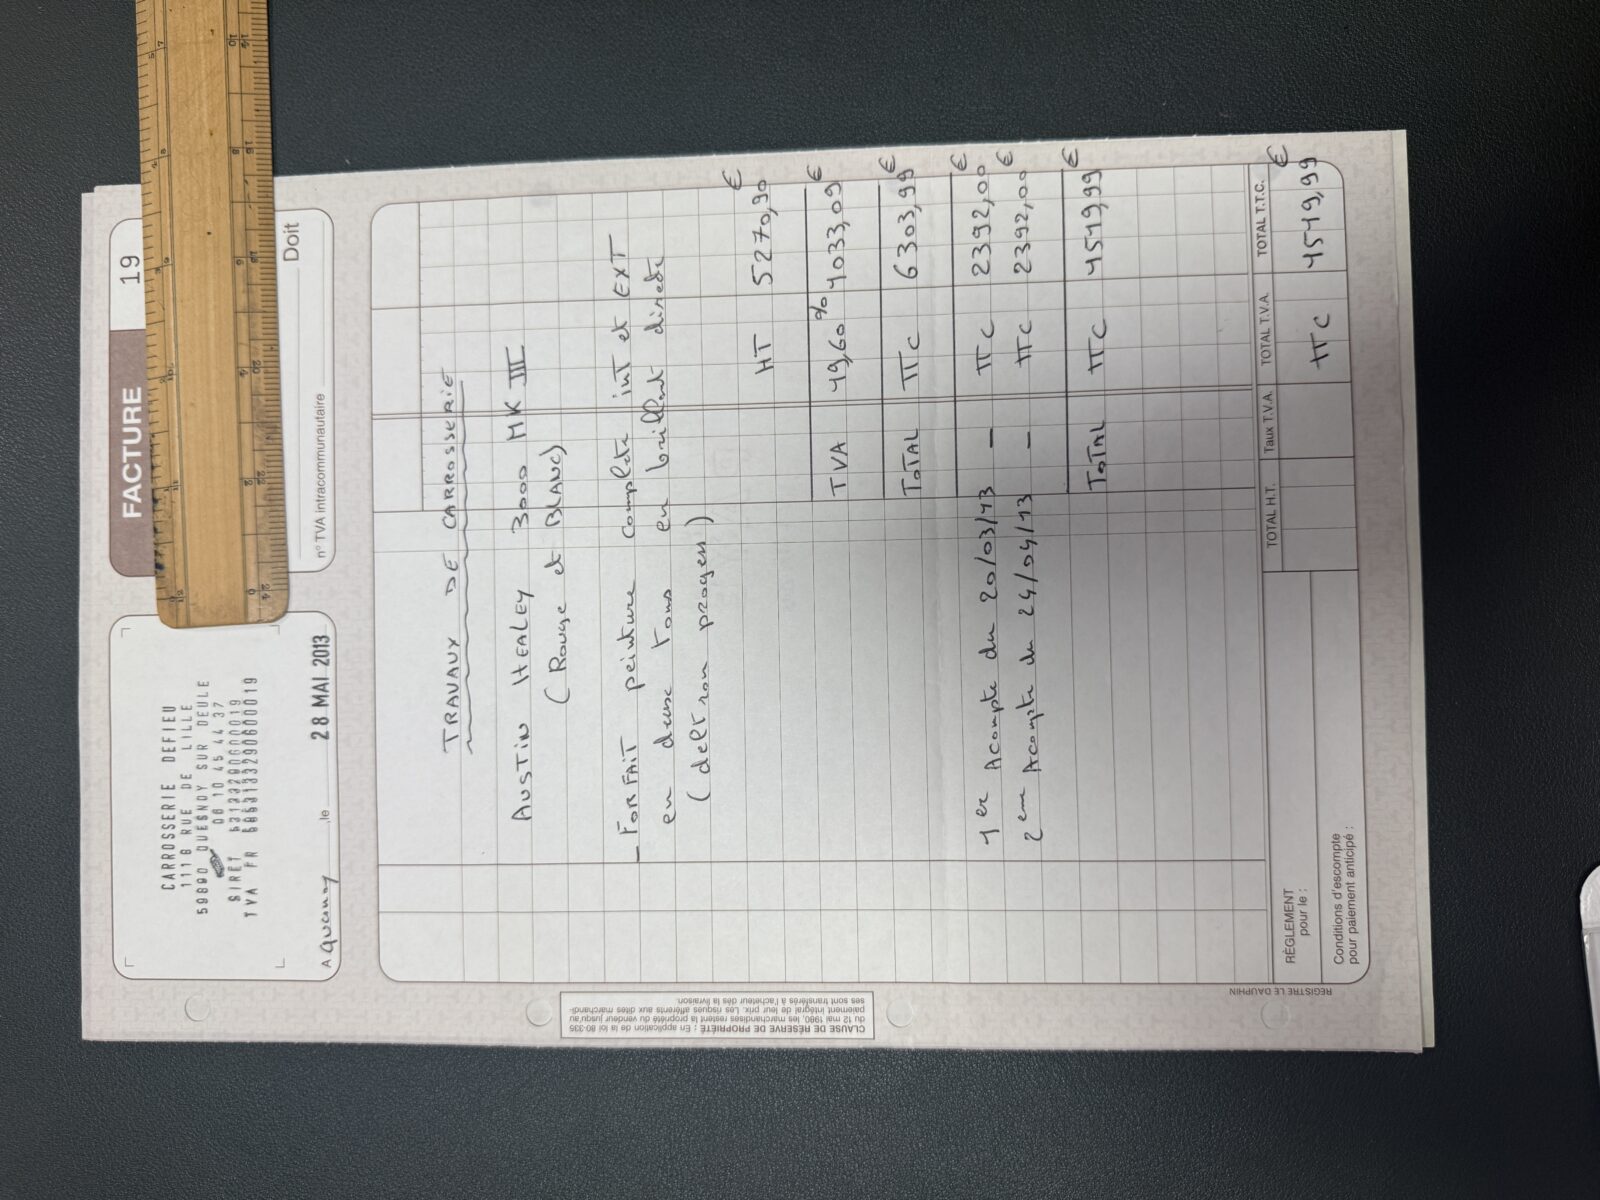 FACTURE 19
CARROSSERIE DEFIEU
111 B RUE DE LILLE
59890 QUESNOY SUR DEULE
06 10 45 44 37
SIRET 53133290600019
TVA FR
A Quesnoy ,le 28 MAI 2013
Doit
n° TVA intracommunautaire
TRAVAUX DE CARROSSERIE
AUSTIN HEALEY 3000 MK III
(Rouge et BLANC)
- FORFAIT peinture complete int et EXT
en deux tons en brillant directe
(deltron progress)
HT 5270,90 €
TVA 19,60% 1033,09 €
TOTAL TTC 6303,99 €
1er Acompte du 20/03/13 – TTC 2392,00 €
2em Acompte du 24/04/13 – TTC 2392,00 €
TOTAL TTC 1519,99 €
TOTAL H.T. Taux T.V.A. TOTAL T.V.A. TOTAL T.T.C.
TTC 1519,99 €
RÈGLEMENT
pour le :
Conditions d'escompte
pour paiement anticipé :
REGISTRE LE DAUPHIN
CLAUSE DE RÉSERVE DE PROPRIÉTÉ : En application de la loi 80-335
du 12 mai 1980, les marchandises restent la propriété du vendeur jusqu'au
paiement intégral de leur prix. Les risques afférents aux dites marchandi-
ses sont transférés à l'acheteur dès la livraison.